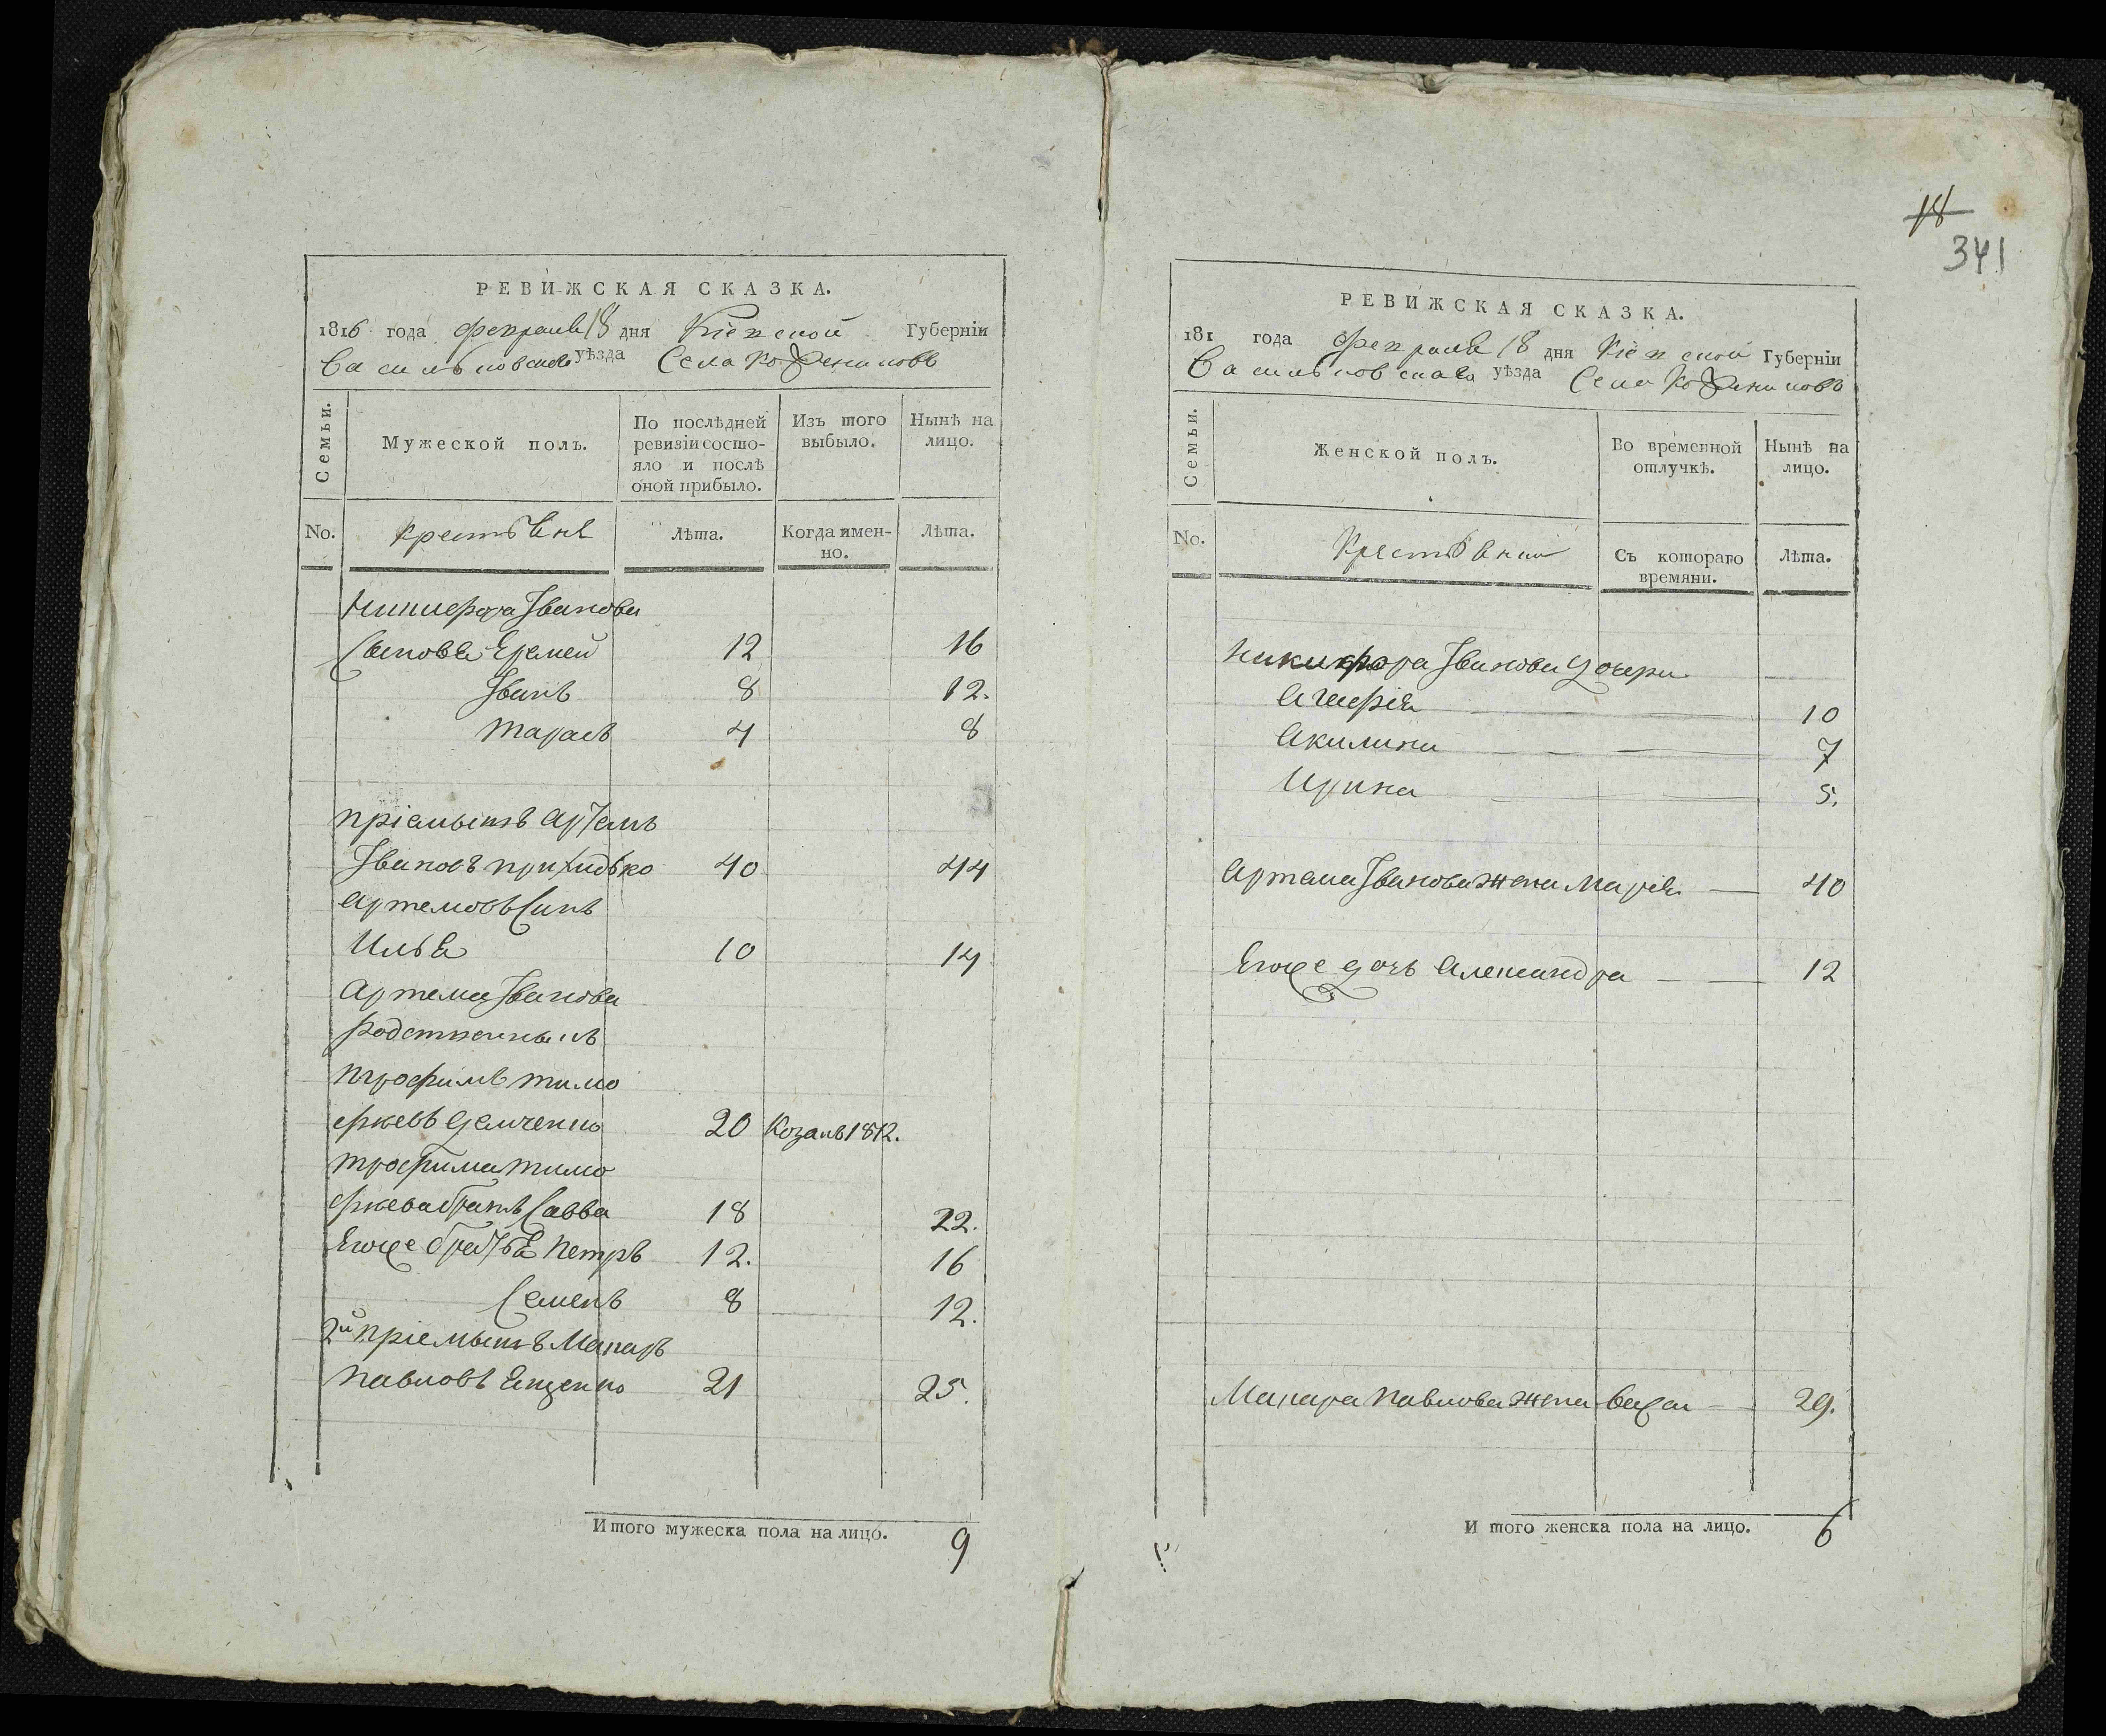 РЕВИЖСКАЯ СКАЗКА.
1816 года февраля 18 дня Кіевской Губерніи
Васильковского уѣзда Села
Семьи.
Мужеской полъ.
По послѣдней ревизіи состояло и послѣ оной прибыло.
Изъ того выбыло.
Нынѣ на лицо.
No.
Крестьяне
Лѣта.
Когда именно.
Лѣта.
Никифора Іванова
Сыновья Еремей 12 16
Іванъ 8 12.
Тарасъ 4 8
пріемышъ Артемъ
Івановъ Прихидько 40 44
Артемовъ Синъ
Илья 10 14
Артема Іванова
Родственникъ
Трофимъ Тимо
фіевъ Демченко 20 Козакъ 1812.
Трофима Тимо
фіева братъ Савва 18 22.
Егоже братья Петръ 12. 16
Семенъ 8 12.
2й пріемышъ Макаръ
Павловъ Ященко 21 25.
Итого мужеска пола на лицо. 9
18
341
РЕВИЖСКАЯ СКАЗКА.
181 года февраля 18 дня Кіевской Губерніи
Васильковскаго уѣзда Села
Семьи.
Женской полъ.
Во временной отлучкѣ.
Нынѣ на лицо.
No.
Крестьянки
Съ котораго времяни.
Лѣта.
Никифора Іванова дочери
Агафія 10
Акилина 7
Ирина 5.
Артема Іванова жена Марія 40
Егоже дочь Александра 12
Макара Павлова жена 29.
И того женска пола на лицо. 6